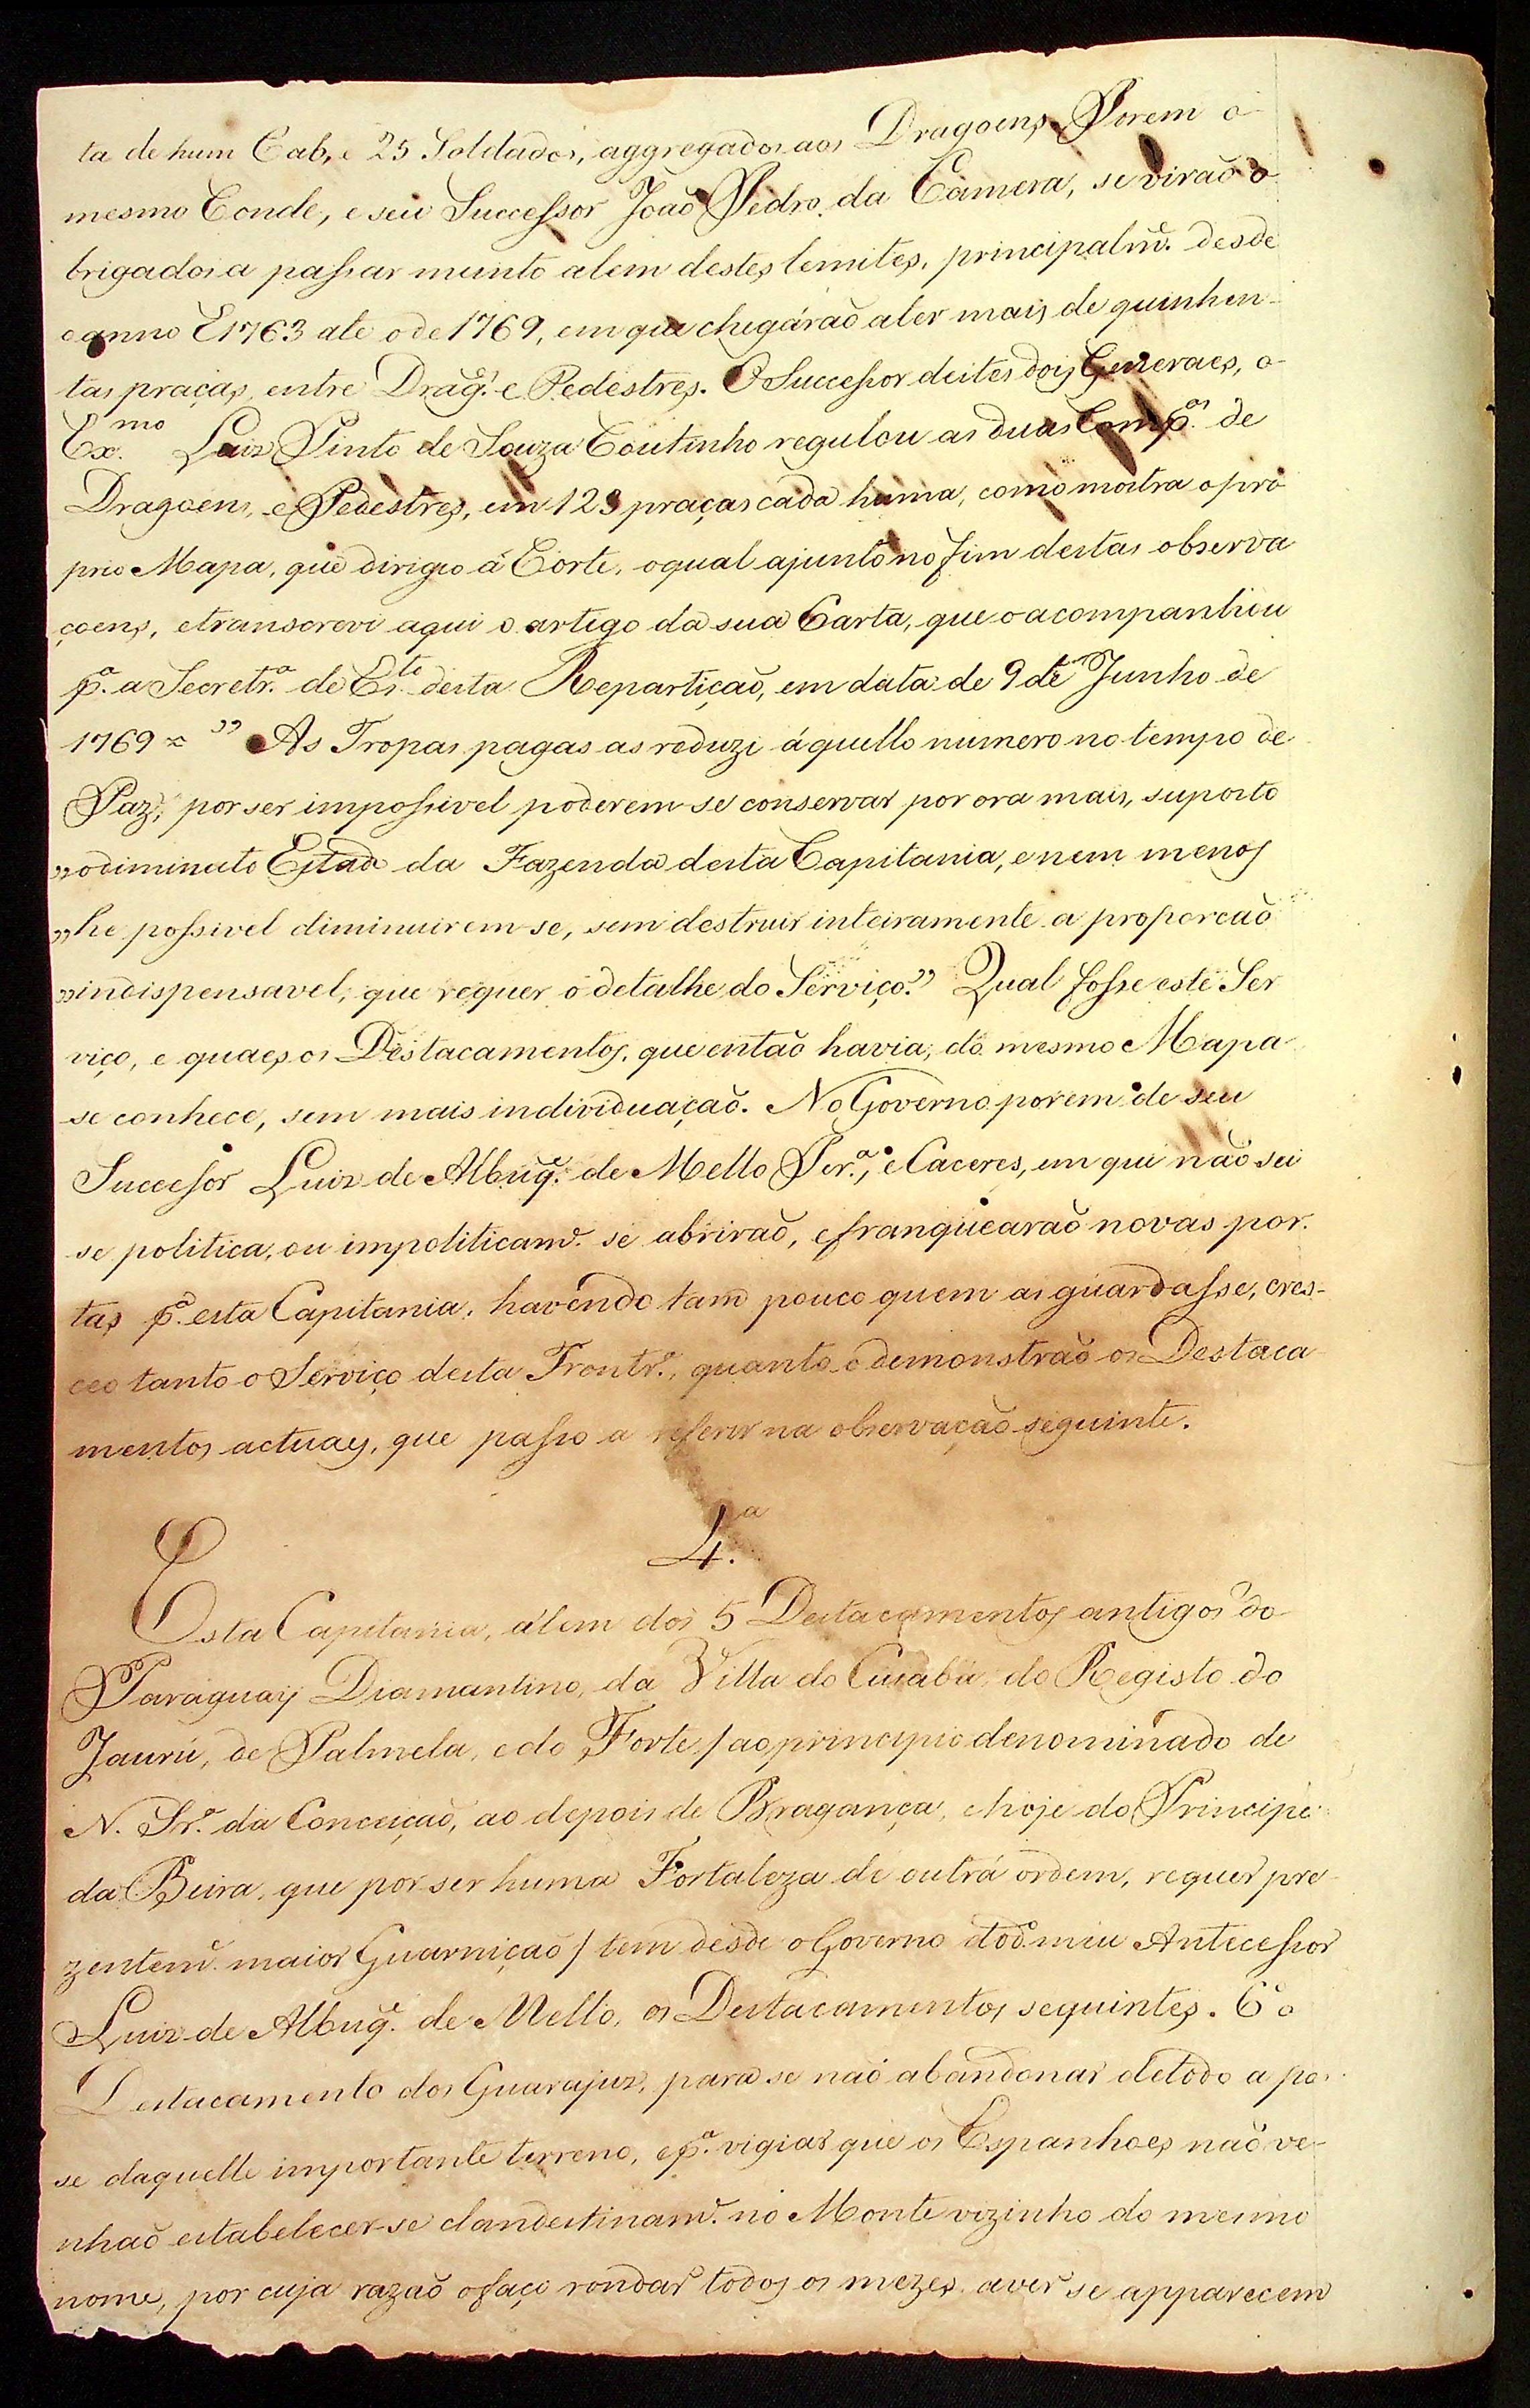 ta de hum Cab, e 25 Soldados, aggregados aos Dragoens. Porem o
mesmo Conde, e seu Successor João Pedro da Camera, se virão o
brigados a passar muinto alem destes lemites, principalmᵉ. desde
o anno d 1763 ate o de 1769, em que chegárão a ter mais de quinhen-
tas praças, entre Dragˢ. e Pedestres. O Successor destes dois Generaes, o
Exᵐᵒ. Luiz Pinto de Souza Coutinho regulou as duas Compᵃˢ. de
Dragoens, e Pedestres, em 123 praças cada huma, como mostra o pro
prio Mapa, que dirigio á Corte, o qual ajunto no fim destas observa
çoens, e transcrevi aqui o artigo da sua Carta, que o acompanhou
pᵃ. a Secretrᵃ. de Esᵗᵒ. desta Repartição, em data de 9 de Junho de
1769 = " As Tropas pagas as reduzi áquello numero no tempo de
Paz, por ser impossivel poderem-se conservar por ora mais, suposto
" o diminuto Estado da Fazenda desta Capitania, e nem menos
" he possivel diminuirem-se, sem destruir inteiramente a proporcaõ
" indispensavel, que requer o detalhe do Serviço." Qual fosse este Ser
viço, e quaes os Destacamentos, que então havia, do mesmo Mapa
se conhece, sem mais individuação. No Governo porem de seu
Successor Luiz de Albuqᵉ. de Mello Perᵃ., e Caceres, em que não sei
se politica, ou impoliticamᵉ. se abrirão, e franquearão novas por.
tas pᵃ. esta Capitania, havendo tam pouco quem as guardasse, cres-
ceo tanto o Serviço desta Frontrᵃ., quanto o demonstrão os Destaca
mentos actuaes, que passo a referir na observação seguinte.
4.ᵃ
Esta Capitania, alem dos 5 Destacamentos antigos do
Paraguay Diamantino, da Villa do Cuiabá, do Registo do
Jaurú, de Palmela, e do Forte / ao principio denominado de
N. Srᵃ. da Conceição, ao depois de Bragança, e hoje do Principe
da Beira, que por ser huma Fortaleza de outra ordem, requer pre
zentemᵉ. maior Guarnição / tem desde o Governo do dᵒ. meu Antecessor
Luiz de Albuqᵉ. de Mello, os Destacamentos seguintes. O
Destacamento dos Guarajuz, para se não abandonar de todo a pos.
se daquelle importante terreno, e pᵃ. vigiar que os Espanhoes não ve-
nhão estabelecer-se clandestinamᵉ. no Monte vizinho do mesmo
nome, por cuja razão o faço rondar todos os mezes, a ver se apparecem